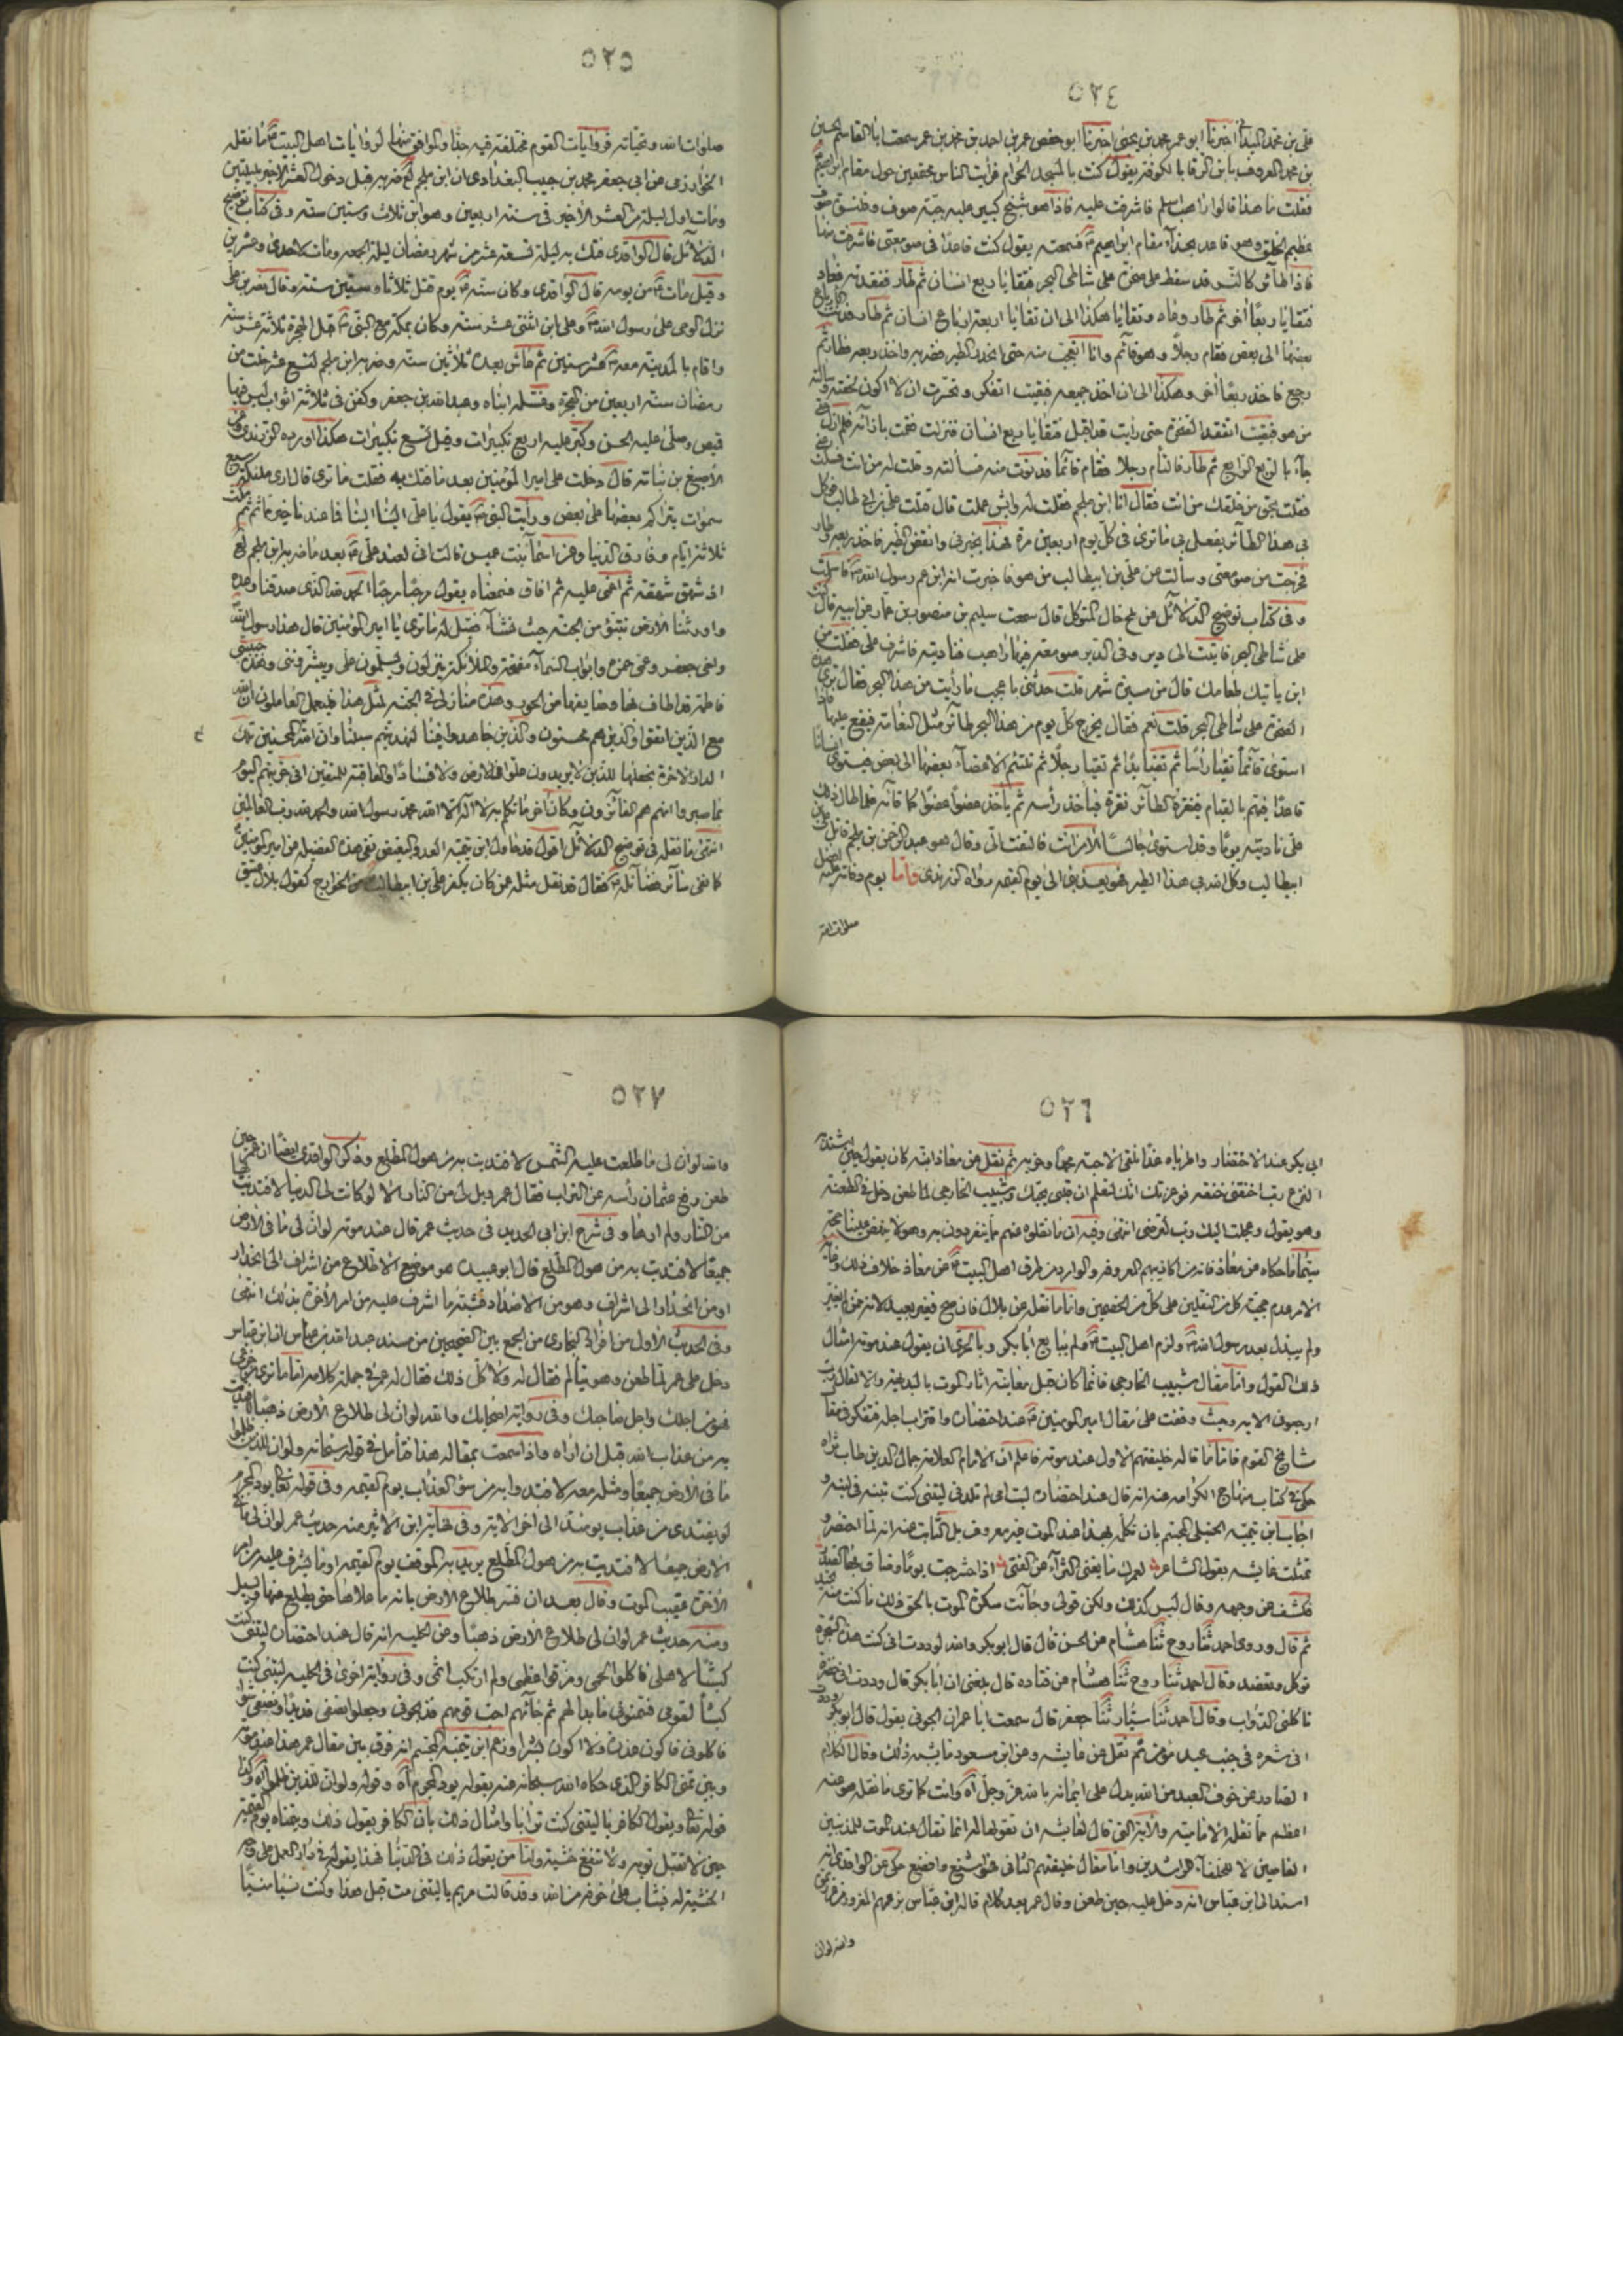 ٥٢٤
علي بن محمد اخبرنا ابو عمر محمد بن يحيى اخبرنا ابو حفص عمر بن احمد بن محمد بن عمر سمعت ابا القاسم الحسن
بن محمد المعروف بابن الرفا بالكوفة يقول كنت بالمسجد الحرام فرأيت الناس مجتمعين حول مقام ابراهيم
فقلت ما هذا قالوا راهب اسلم فاشرفت عليه فاذا هو شيخ كبير عليه جبة صوف
عظيم الخلق وهو قاعد بحذاء مقام ابراهيم فسمعته يقول كنت قاعدا في صومعتي فاشرفت منها
فاذا طائر كالنسر قد سقط على صخرة على شاطئ البحر فتقايا ربع انسان ثم طار فتفقدته فعاد
فتقايا ربعا اخر ثم طار وعاد وتقايا هكذا الى ان تقايا اربعة ارباع انسان ثم طار فدنت
بعضها الى بعض فقام رجلا وهو قائم وانا اتعجب منه حتى انحدر الطير فضربه واخذ ربعه فطار ثم
رجع فاخذ ربعا اخر وهكذا الى ان اخذ جميعه فبقيت اتفكر وتحسرت ان لا اكون لحقته
من هو فبقيت اتفقد الصخرة حتى رأيت قد اقبل فتقايا ربع انسان فنزلت فقمت بازائه فلم ازل
جاء بالربع الرابع ثم طار فالتأم رجلا فقام قائما فدنوت منه فسألته وقلت له من انت فسكت
فقلت بحق من خلقك من انت فقال انا ابن ملجم فقلت له وايش عملت قال قتلت علي بن ابي طالب فوكل
بي هذا الطائر يفعل بي ما ترى في كل يوم اربعين مرة فهذا يخبرني وانقض الطير فاخذ ربعه وطار
فخرجت من صومعتي وسألت عن علي بن ابيطالب من هو فاخبرت انه ابن عم رسول الله فاسلمت
وفي كتاب توضيح الدلائل عن المتوكل قال سمعت سليم بن منصور بن عمار عن ابيه قال
على شاطئ البحر فاتيت الى دير وفي الدير صومعة فيها راهب فناديته فاشرف علي فقلت من
اين يأتيك طعامك قال من مسيرة شهر قلت حدثني باعجب ما رأيت من هذا البحر فقال ترى
الصخرة على شاطئ البحر قلت نعم فقال يخرج كل يوم من هذا البحر طائر مثل النعامة فيقع عليها
استوى قائما تقيأ رأسا ثم تقيأ يدا ثم تقيأ رجلا ثم تلتئم الاعضاء بعضها الى بعض فيستوى
قاعدا فيهم بالقيام فينقره الطائر نقرة فيأخذ رأسه ثم يأخذ عضوا عضوا كما قاءه فلما طال ذلك
علي ناديته يوما وقد استوى جالسا الا من انت فالتفت الي وقال هو عبد الرحمن بن ملجم قاتل
ابيطالب وكل الله بي هذا الطير فهو يعذبني الى يوم القيمة رواه الزرندى واما يوم وفاته
صلوات الله
٥٢٥
صلوات الله وتحياته فروايات القوم مختلفة فيه جدا والموافق منها لروايات اهل البيت ما نقله
الخوارزمي عن ابي جعفر محمد بن حبيب البغدادي ان ابن ملجم ضربه قبل دخول العشر الاخير بليلتين
ومات اول ليلة من العشر الاخير في سنة اربعين وهو ابن ثلاث وستين سنة وفي كتاب توضيح
الدلائل قال الواقدي فتك به ليلة تسعة عشر من شهر رمضان ليلة الجمعة ومات لاحدى وعشرين
وقيل مات من يومه قال الواقدي وكان سنه يوم قتل ثلاثا وستين سنة وقال
نزل الوحي على رسول الله وعلي ابن اثنتي عشر سنة وكان بمكة مع النبي قبل الهجرة ثلاثة عشر سنة
واقام بالمدينة معه عشر سنين ثم عاش بعده ثلاثين سنة وضربه ابن ملجم لتسع عشر خلت من
رمضان سنة اربعين من الهجرة وغسله ابناه وعبد الله بن جعفر وكفن في ثلاثة اثواب ليس فيها
قميص وصلى عليه الحسن وكبر عليه اربع تكبيرات وقيل تسع تكبيرات هكذا اورده الزرندي
الاصبغ بن نباتة قال دخلت على امير المؤمنين بعد ما فتك به فقلت ما ترى قال ارى ملئكة سبع
سموات يتراكم بعضها على بعض ورأيت النبي يقول يا علي الينا الينا فما عندنا خير ثم مكث
ثلاثة ايام وفارق الدنيا وعن اسماء بنت عميس قالت اني لعند علي بعد ما ضربه ابن ملجم
اذ شهق شهقة ثم اغمي عليه ثم افاق فسمعناه يقول مرحبا مرحبا الحمد لله الذي صدقنا وعده
واورثنا الارض نتبؤ من الجنة حيث نشاء فقيل له ما ترى يا امير المؤمنين قال هذا رسول الله
واخي جعفر وعمي حمزة وابواب السماء مفتحة والملائكة ينزلون ويسلمون علي ويبشرونني وهذه
فاطمة قد اطاف بها وصايفها من الحور وهذه منازلي في الجنة لمثل هذا فليعمل العاملون ان الله
مع الذين اتقوا والذين هم محسنون والذين جاهدوا فينا لنهدينهم سبلنا وان الله لمع المحسنين تلك
الدار الاخرة نجعلها للذين لا يريدون علوا في الارض ولا فسادا والعاقبة للمتقين اني جزيتهم اليوم
بما صبروا انهم هم الفائزون وكان اخر ما تكلم به لا اله الا الله محمد رسول الله والحمد لله رب العالمين
انتهى ما نقله في توضيح الدلائل اقول قد حاول ابن تيمية العدو البغيض نفي هذه الفضيلة عن امير المؤمنين
كما نفى سائر فضائله فقال قد نقل مثله عن كان يكفر علي بن ابيطالب من الخوارج كقول بلال عتيق
٥٢٦
ابي بكر عند الاحتضار واطرباه غدا نلقى الاحبة محمدا وحزبه ثم نقل عن معاذ انه كان يقول حين اشتد
النزع رب اخنقني خنقه فوعزتك انك لتعلم ان قلبي يحبك وشبيب الخارجي لما طعن دخل في الطعنة
وهو يقول وعجلت اليك رب لترضى انتهى وفيه ان ما نقلوه عنهم مما ينفردون به وهو لا ينهض علينا حجة
سيما ما حكاه عن معاذ فانه من اكاذيبهم المعروفة والوارد من طرق اهل البيت عن معاذ خلاف ذلك
واما ما نقل عن بلال فان صح فغير بعيد لانه ممن لم يغير
ولم يبدل بعد رسول الله ولزم اهل البيت ولم يبايع ابا بكر وبالحرى ان يقول عند موته امثال
ذلك القول واما مقال شبيب الخارجي فانما كان قبل معاينة اثار الموت
ارجعون الاية وحيث وقفت على مقال امير المؤمنين عند احتضاره واقتراب اجله فتفكر في مقا
مشايخ القوم فاما ما قاله خليفتهم الاول عند موته فاعلم ان الامام العلامة جمال الدين طاب ثراه
حكى في كتاب منهاج الكرامة عنه انه قال عند احتضاره ليت امي لم تلدني ليتني كنت تبنة في لبنة و
اجاب ابن تيمية الحنبلي المجسم بان تكلمه بهذا عند الموت غير معروف بل الثابت عنه انه لما احتضر و
تمثلت عايشه بقول الشاعر لعمرك ما يغني الثراء عن الفتى اذا حشرجت يوما وضاق بها الصدر
فكشف عن وجهه وقال ليس كذلك ولكن قولي وجاءت سكرة الموت بالحق ذلك ما كنت منه تحيد
ثم قال وروى احمد ثنا روح ثنا هشام عن الحسن قال قال ابو بكر والله لوددت اني كنت هذه الشجرة
توكل وتعضد وقال احمد ثنا روح ثنا هشام عن قتادة قال بلغني ان ابا بكر قال وددت اني خضرة
تاكلني الدواب وقال احمد ثنا سيار ثنا جعفر قال سمعت ابا عمران الجوني يقول قال ابو بكر وددت
اني شعرة في جنب عبد مؤمن ثم نقل عن عايشه وعن ابن مسعود ما يشبه ذلك وقال الكلام
الصادر عن خوف العبد من الله يدل على ايمانه بالله عز وجل وانت كما ترى ما نقله هو عنه
اعظم مما نقله الامامية والآية التي قال لعايشه ان تقولها انما تقال عند الموت للمذنبين
العاصين لا للخلفاء الراشدين واما مقال خليفتهم الثاني فهو اشنع وافضع حكى عن الواقدي انه
اسند الى ابن عباس انه دخل عليه حين طعن وقال عمر بعد كلام قاله ابن عباس
والله لو ان
٥٢٧
والله لو ان لي ما طلعت عليه الشمس لافتديت به من هول المطلع وذكر الواقدي ايضا ان عمر حين
طعن رفع عثمان رأسه عن التراب فقال عمر ويل لي من النار الا لو كانت لي الدنيا لافتديت بها
من النار ولم ارها وفي شرح ابن ابي الحديد في حديث عمر قال عند موته لو ان لي ما في الارض
جميعا لافتديت به من هول المطلع قال ابو عبيد هو موضع الاطلاع من اشراف الى انحدار
او من انحدار الى اشراف وهو من الاضداد فشبه ما اشرف عليه من امر الاخرة بذلك انتهى
وفي الحديث الاول من افراد البخاري من الجمع بين الصحيحين من مسند عبد الله بن عباس ان ابن عباس
دخل على عمر لما طعن وهو يتألم فقال له ولا كل ذلك فقال له عمر في جملة كلامه اما ما ترى من جزعي
فهو من اجلك واجل صاحبك وفي رواية اصحابك والله لو ان لي طلاع الارض ذهبا لافتديت
به من عذاب الله قبل ان اراه واذا سمعت بمقاله هذا فتأمل في قوله سبحانه ولو ان للذين ظلموا
ما في الارض جميعا ومثله معه لافتدوا به من سوء العذاب يوم القيمة وفي قوله تعالى يود المجرم
لو يفتدى من عذاب يومئذ الى اخر الاية وفي نهاية ابن الاثير عنه حديث عمر لو ان لي ما في
الارض جميعا لافتديت به من هول المطلع يريد به الموقف يوم القيمة او ما يشرف عليه من امر
الاخرة عقيب الموت وقال بعد ان فسر طلاع الارض بانه ما ملاءها حتى يطلع عنها ويسيل
ومنه حديث عمر لو ان لي طلاع الارض ذهبا وعن الحلية انه قال عند احتضاره ليتني كنت
كبشا لاهلي فاكلوا لحمي ومزقوا عظمي ولم ارتكب اثمي وفي رواية اخرى في الحلية ليتني كنت
كبشا لقومي فسمنوني ما بدا لهم ثم جاءهم احب قومهم فذبحوني وجعلوا نصفي قديدا ونصفي شواء
فاكلوني فاكون عذرة ولا اكون بشرا وزعم ابن تيمية المجسم انه فرق بين مقال عمر هذا عند موته
وبين تمني الكافر الذي حكاه الله سبحانه عنه بقوله يود المجرم وقوله ولو ان للذين ظلموا وكذا
قوله تعالى ويقول الكافر يا ليتني كنت ترابا وامثال ذلك بان الكافر يقول ذلك يوم القيمة
حين لا تقبل توبة ولا تنفع خشية واما من يقول ذلك في الدنيا فهذا يقوله في دار العمل على وجه
الخشية لله فيثاب على خوفه من الله وقد قالت مريم يا ليتني مت قبل هذا وكنت نسيا منسيا